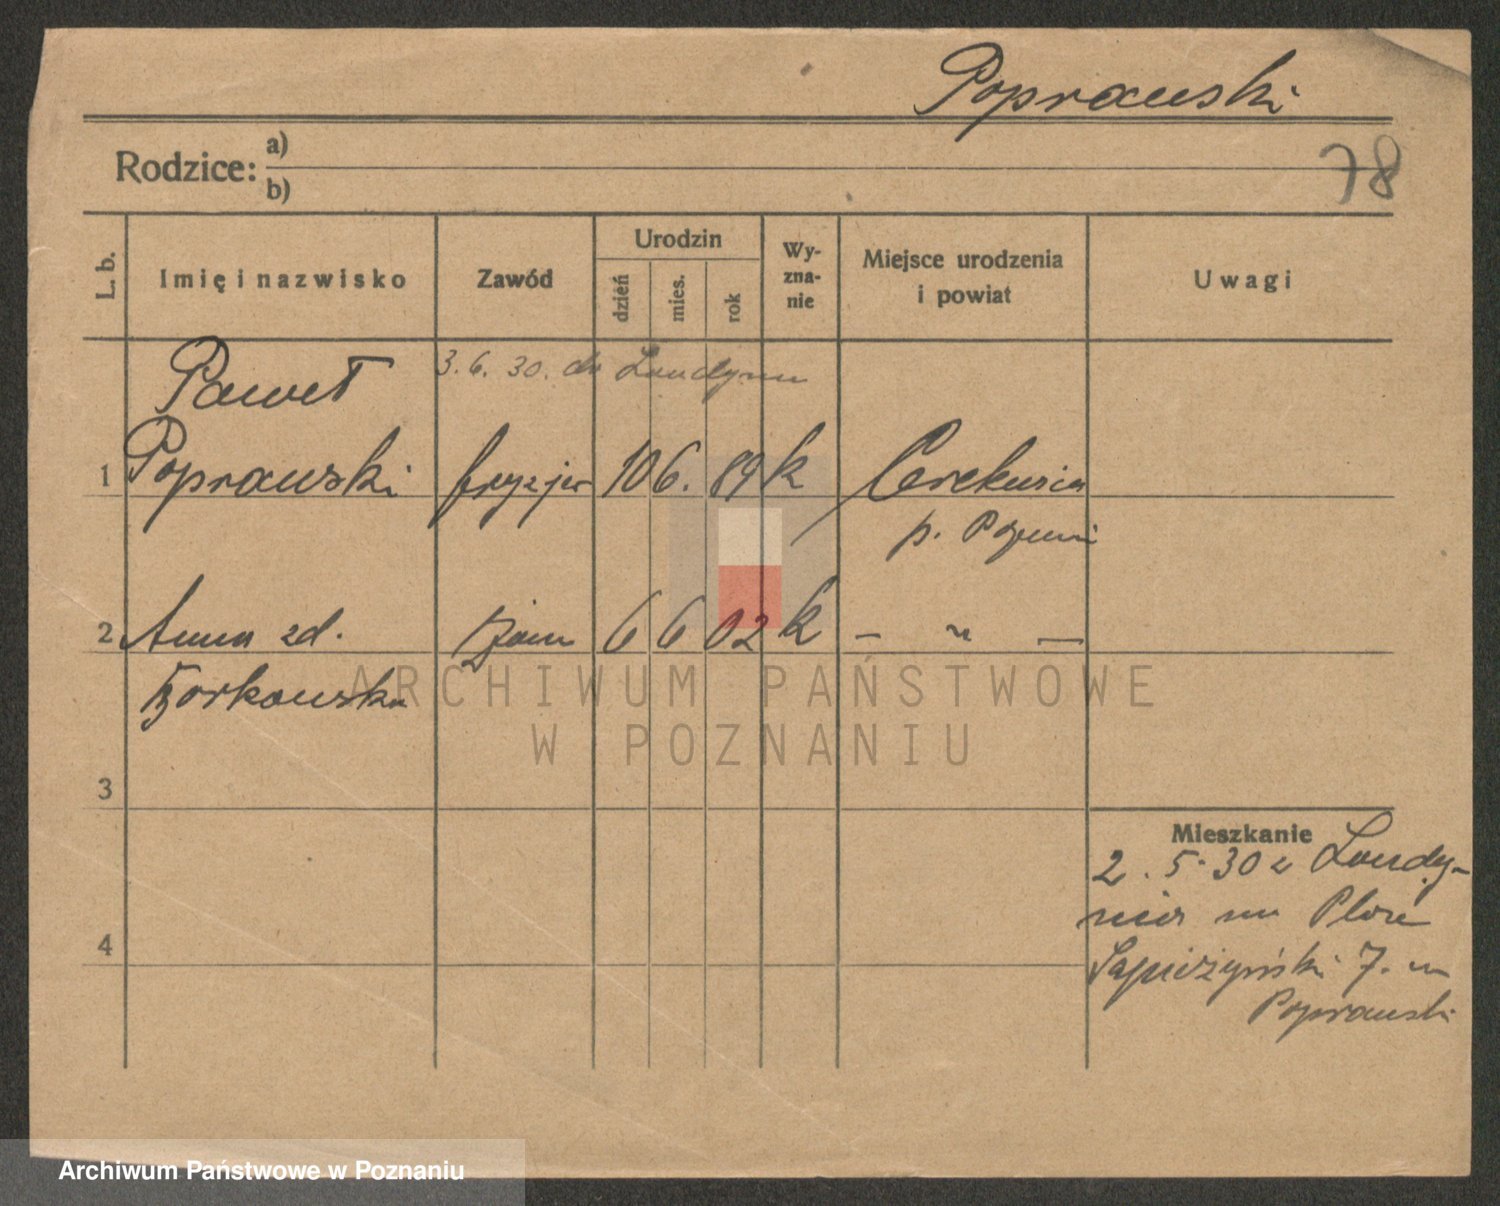 Poprawski
78
Rodzice: a)
b)
L. b.
Imię i nazwisko
Zawód
Urodzin
dzień
mies.
rok
Wy-
zna-
nie
Miejsce urodzenia
i powiat
Uwagi
3. 6. 30. do Londynu
Paweł
1 Poprawski fryzjer 10 6. 89 k Cerekwica
p. Poznań
2 Anna zd. 6 6 02 k — " —
Borkowska
3
4
Mieszkanie
2. 5. 30 z Londy-
nu na Plac
Sapieżyński 7. u
Poprawski
ARCHIWUM PAŃSTWOWE
W POZNANIU
Archiwum Państwowe w Poznaniu